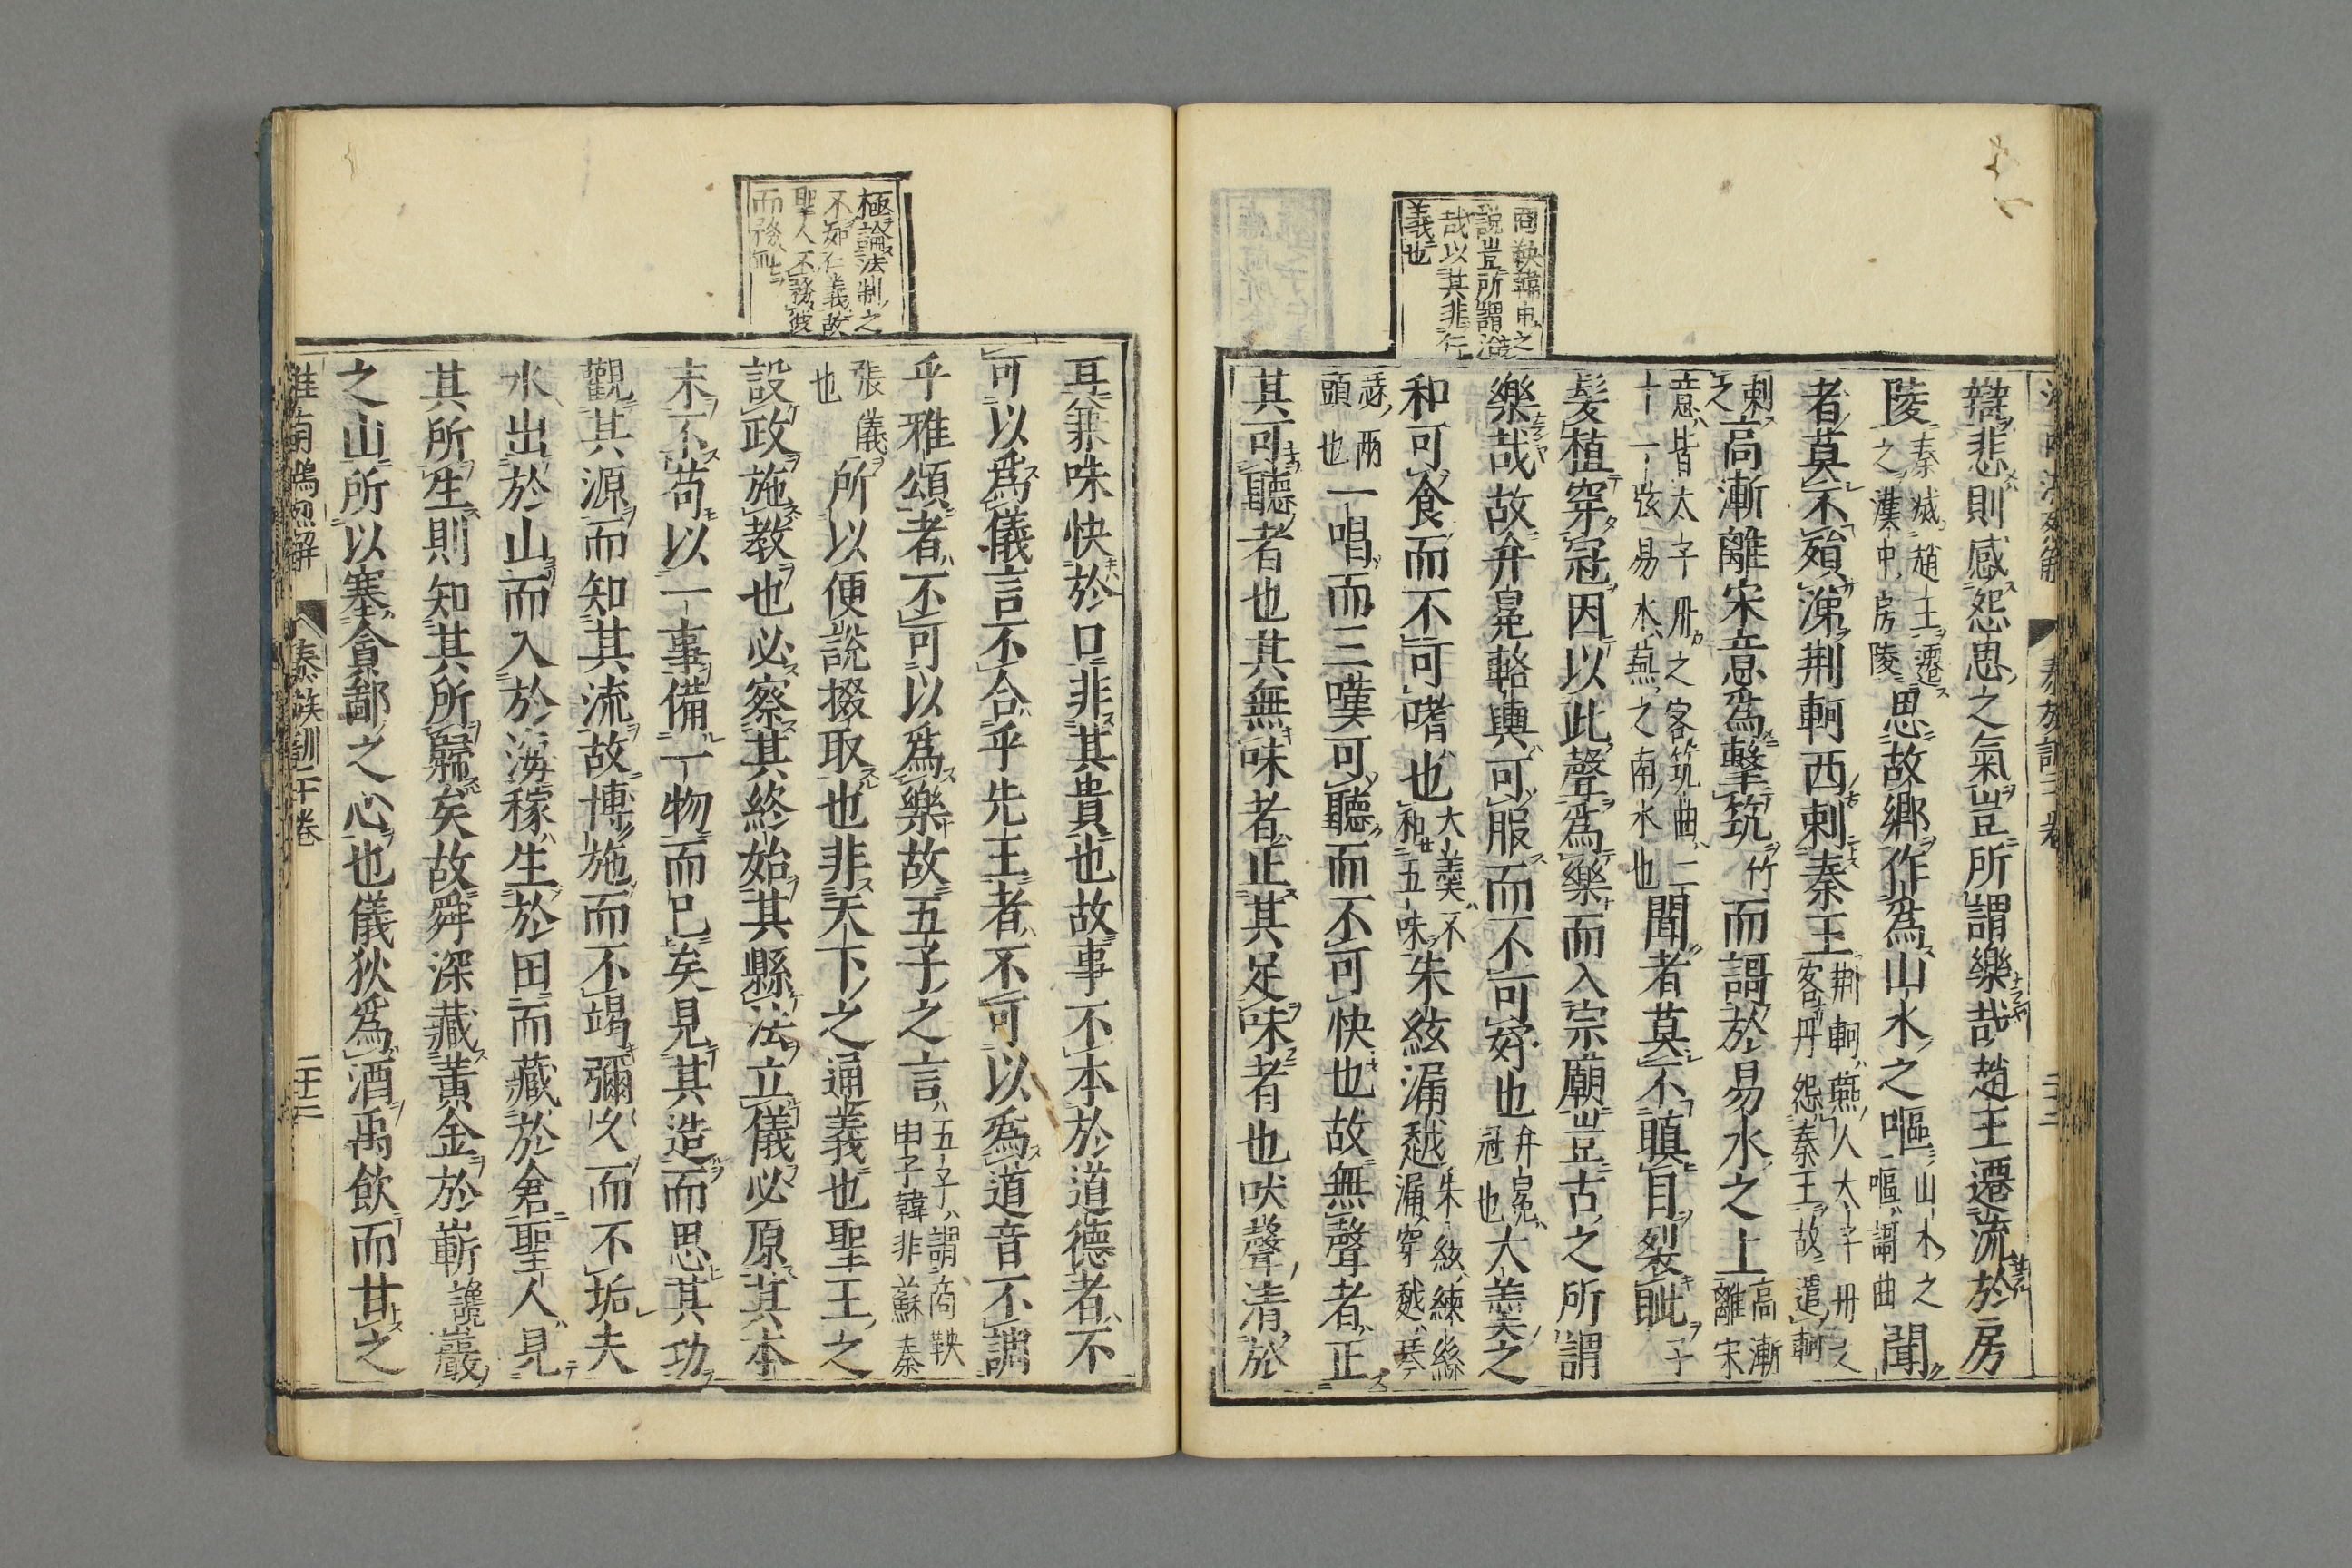 商鞅韓申之
說豈所謂樂
哉以其非仁
義也
辯悲則感怨思之氣豈所謂樂哉趙王遷流於房
陵秦滅趙王遷之漢中房陵思故鄉作爲山水之嘔山水之嘔謌曲聞
者莫不殞涕荆軻西刺秦王荆軻燕人太子丹之客丹怨秦王故遣軻
刺之高漸離宋意爲擊筑竹而謌於易水之上高漸離宋
意皆太子丹之客筑曲二十一弦易水燕之南水也聞者莫不瞋目裂眦子
髮植穿冠因以此聲爲樂而入宗廟豈古之所謂
樂哉故弁冕輅輿可服而不可好也弁冕冠也大羹之
和可食而不可嗜也大羹不和五味朱絃漏越朱絃練絲漏穿越琴
瑟两頭也一唱而三嘆可聽而不可快也故無聲者正
其可聽者也其無味者正其足味者也吠聲清於
極論法制之
不知仁義故
聖人不務彼
而務此
耳兼味快於口非其貴也故事不本於道德者不
可以爲儀言不合乎先王者不可以爲道音不調
乎雅頌者不可以爲樂故五子之言五子謂商鞅申子韓非蘇秦
張儀也所以便說掇取也非天下之通義也聖王之
設政施教也必察其終始其縣法立儀必原其本
末不苟以一事備一物而已矣見其造而思其功
觀其源而知其流故博施而不竭彌久而不垢夫
水出於山而入於海稼生於田而藏於倉聖人見
其所生則知其所歸矣故舜深藏黃金於嶄讒巖
之山所以塞貪鄙之心也儀狄爲酒禹飲而甘之
淮南鴻烈解 泰族訓二十卷 二十二